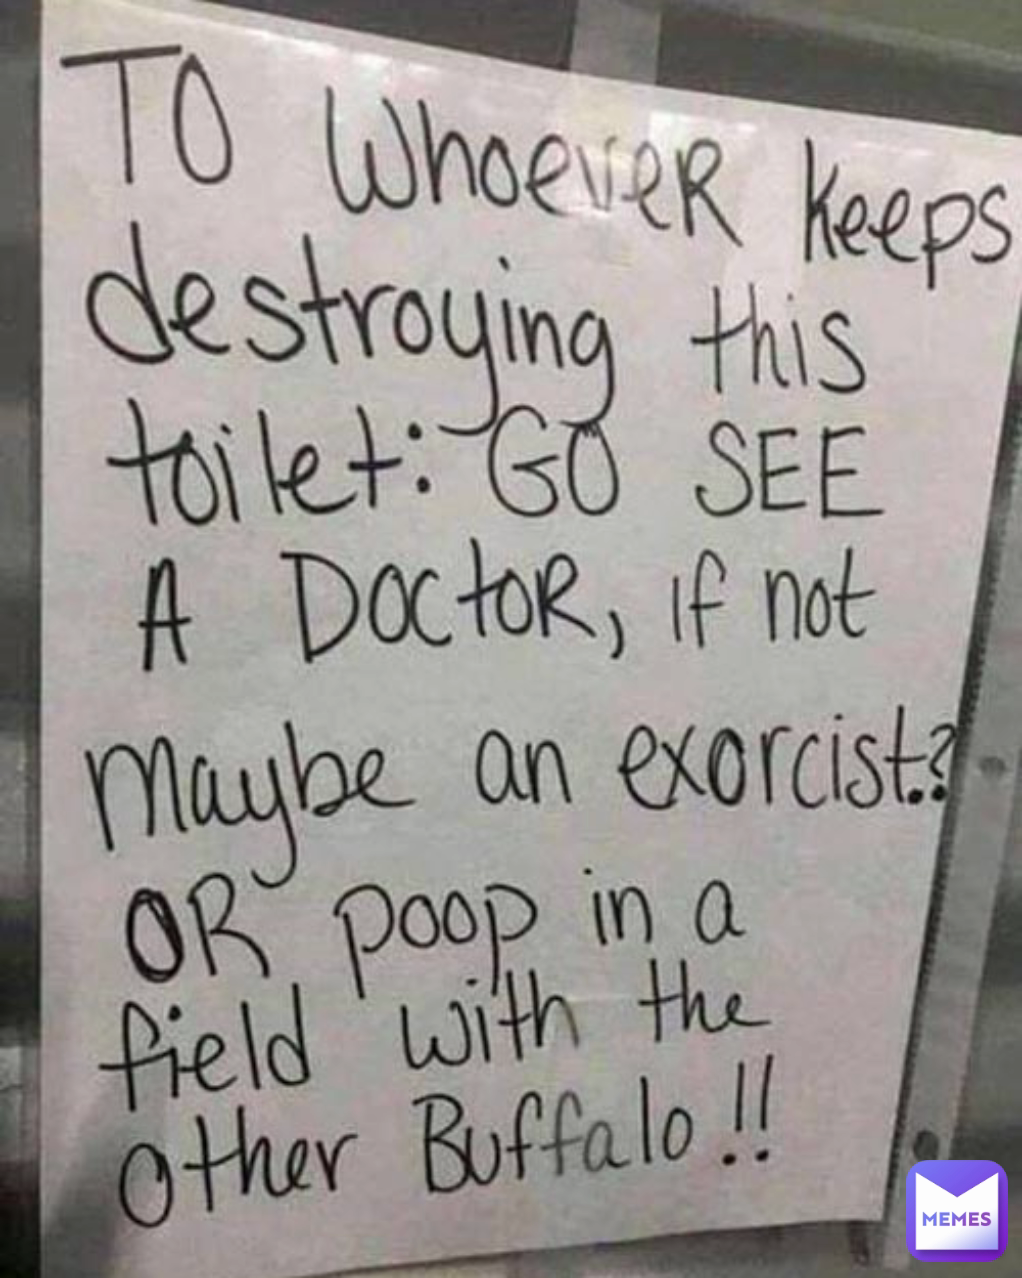 TO WhoeveR keeps
destroying this
toilet: GO SEE
A DOCtOR, if not
Maybe an exorcist.?
OR poop in a
field with the
other Buffalo!!
MEMES